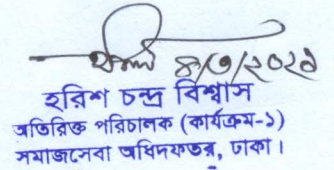 ৪/৩/২০২১
হরিশ চন্দ্র বিশ্বাস
অতিরিক্ত পরিচালক (কার্যক্রম-১)
সমাজসেবা অধিদফতর, ঢাকা।